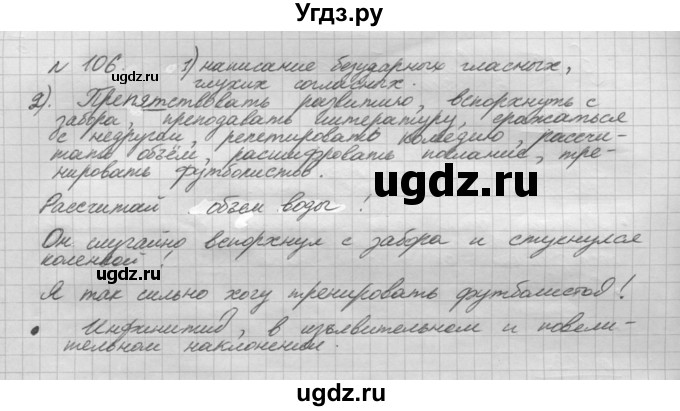 Угдз.ру
№ 106. 1) написание безударных гласных,
глухих согласных.
2). Препятствовать развитию, вспорхнуть с
забора, преподавать литературу, сражаться
с недругом, репетировать комедию, рассчи-
тать объём, расшифровать послание, тре-
нировать футболистов.
Рассчитай объем воды!
Он случайно вспорхнул с забора и стукнулся
коленкой!
Я так сильно хочу тренировать футболистов!
• Инфинитив, в изъявительном и повели-
тельном наклонении.
ugdz.ru
ugdz.ru
ugdz.ru
ugdz.ru
ugdz.ru
ugdz.ru
ugdz.ru